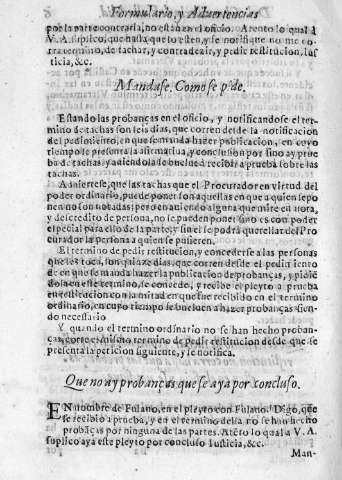 Formulario, y Advertencias
por la parte contraria, no estan en el oficio. Atento lo qual à
V. A. suplico, que halla que lo esten, y se notifique no me co-
rra termino, de tachar, y contradezir, y pedir restitucion, Iu-
sticia, &c.
Mandase. Como se pide.
Estando las probanças en el oficio, y notificandose el ter-
mino de tachas son seis dias, que corren desde la notificacion
del pedimiento, en que se manda hazer publicacion, en cuyo
tiempo se presenta la afirmatiua, y conclusion por si no ay prue
ba de tachas, y auiendola se buelue à recibir à prueba sobre las
tachas.
Aduiertese, que las tachas que el Procurador en virtud del
poder ordinario, puede poner son aquellas en que a quien se po
nen no son notadas; pero en auiendo alguna que mire en hõra,
y descredito de persona, no se pueden poner sino es con poder
especial para ello de la parte, y sin el se podrà querellar del Pro
curador la persona a quien se pusieren.
El termino de pedir restitucion, y concederse a las personas
que les toca, son quinze dias que corren desde el pedimiento
de en que se manda hazer la publicacion de probanças, y pidiẽ
dola en este termino, se concede, y recibe el pleyto a prueba
en restitucion con la mitad en que fue recibido en el termino
ordinario, en cuyo tiempo se bueluen a hazer probanças sien-
do necessario
Y quando el termino ordinario no se han hecho proban-
ças, corre el mismo termino de pedir restitucion desde que se
presenta la peticion siguiente, y se notifica.
Que no ay probanças que se aya por concluso.
EN nombre de Fulano, en el pleyto con Fulano. Digo, que
se recibiò a prueba, y en el termino della no se han hecho
probãças por ninguna de las partes. Atẽto lo qual à V. A.
suplico aya este pleyto por concluso Iusticia, &c.
Man-